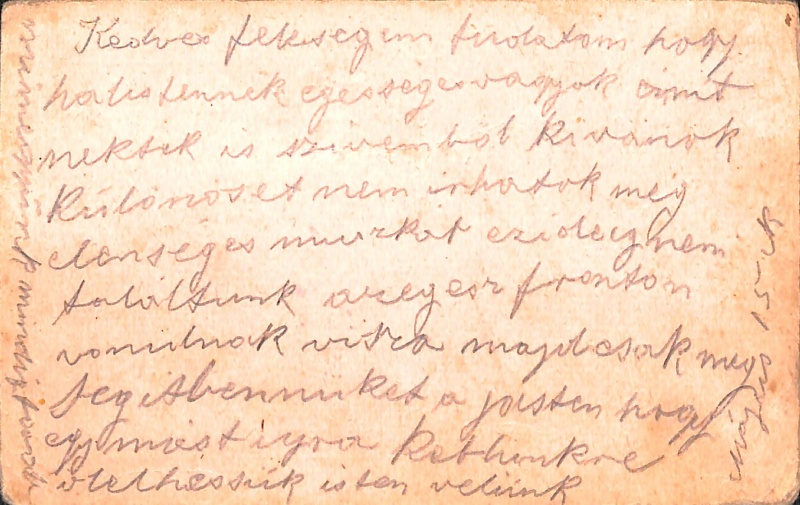 Kedves felesegim tudatom hogy
halistennek egesseges vagyok amit
nektek is szivembol kivanok
Külonoset nem irhatok meg
elenseges muszkat ezideig nem
talaltunk az egesz fronton
vonulnak viszsa majd csak meg
segit bennünket a jo isten hogy
egymast ujra keblunkre
ölelhessük isten velünk